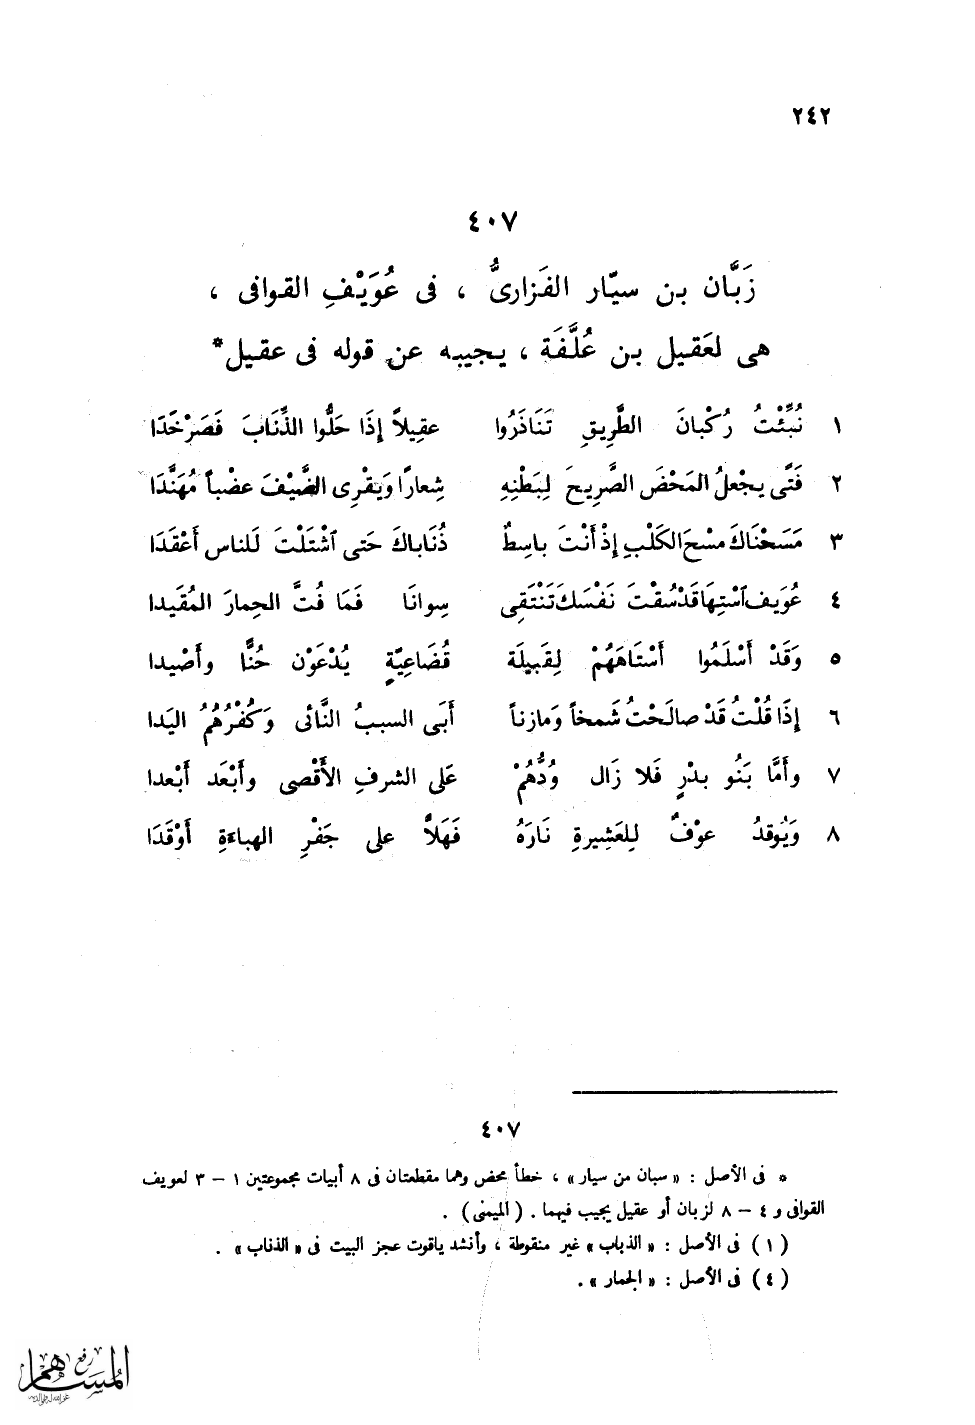 ٢٤٢
٤٠٧
زَبَّان بن سيّار الفَزارىُّ ، فى عُوَيْفِ القوافى ،
هى لعَقيل بن عُلَّفَة ، يجيبه عن قوله فى عقيل*
١ نُبِّئْتُ رُكْبانَ الطَّرِيقِ تَنَاذَرُوا عقيلاً إذَا حَلُّوا الذِّنَابَ فَصَرْخَدَا
٢ فَتًى يجْعلُ المَحْضَ الصَّرِيحَ لِبَطْنِهِ شِعارًا وَيَقْرِى الضَّيْفَ عضْباً مُهَنَّدَا
٣ مَسَحْنَاكَ مسْحَ الكَلْبِ إذْ أَنْتَ باسِطٌ ذُنَاباكَ حَتى ٱشْتَلْتَ لَلناس أَعْقَدَا
٤ عُوَيف ٱسْتِهَا قَدْ سُقْتَ نَفْسَكَ تَنْتَقِى سِوانَا فَمَا فُتَّ الحِمارَ المُقَيدا
٥ وَقَدْ أَسْلَمُوا أَسْتَاهَهُمْ لِقَبِيلَة قُضَاعِيّةٍ يُدْعَوْن حُنًّا وأَصْيدا
٦ إذَا قُلْتُ قَدْ صالَحْتُ شَمخاً وَمازناً أَبَى السببُ النَّائى وَكُفْرُهُمُ اليَدا
٧ وأَمَّا بَنُو بدْرٍ فَلا زَال وُدُّهُمْ عَلى الشرفِ الأَقْصى وأَبْعَد أَبْعدا
٨ وَيُوقدُ عوْفٌ لِلعَشِيرةِ نَارَهُ فَهَلاَّ على جَفْرِ الهباءةِ أَوْقَدَا
٤٠٧
* فى الأصل : « سبان من سيار » ، خطأ محض وهما مقطعتان فى ٨ أبيات مجموعتين ١ – ٣ لعويف
القوافى و ٤ – ٨ لزبان أو عقيل يجيب فيهما . ( الميمنى ) .
( ١ ) فى الأصل : « الذباب » غير منقوطة ، وأنشد ياقوت عجز البيت فى « الذناب » .
( ٤ ) فى الأصل : « الجمار » .